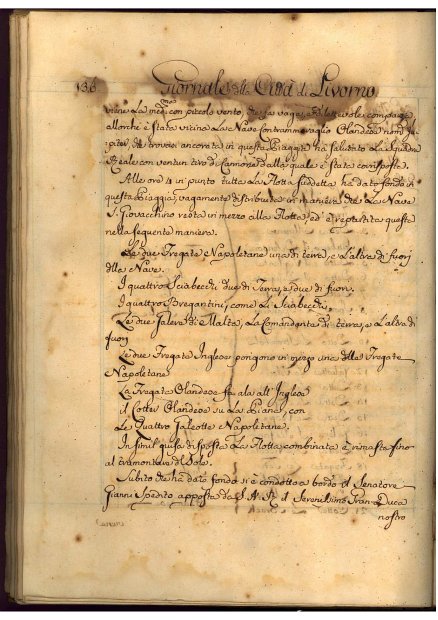 136 Giornale della Città di Livorno
con piccolo vento,
allorche è stata vicina La Nave Contrammiraglio Olandese
che trovasi ancorata in questa Spiaggia ha salutato La Squadra
Reale con ventun tiro di Cannone dalla quale è stata corrisposta.
Alle ore 4 in punto tutta La Flotta suddetta ha dato fondo in
questa Spiaggia, vagamente distribuita in maniera che La Nave
S. Giovacchino resta in mezzo alla Flotta, ed è repartita questa
nella seguente maniera.
Le due Fregate Napoletane una di terra, e L'altra di fuori
della Nave.
I quattro Sciabecchi due di Terra, e due di fuori.
I quattro Bregantini, come Li Sciabecchi,
Le due Galere di Malta, La Comandante di terra, e L'altra di
fuori
Le due Fregate Inglese pongono in mezzo una delle Fregate
Napoletane
La Fregata Olandese fa ala all'Inglese
Il Cotter Olandese su La Bianca, con
Le Quattro Galeotte Napoletane.
In simil guisa disposta La Flotta combinata è rimasta fino
al tramontare del Sole.
Subito che ha dato fondo si è condotto a bordo il Senatore
Gianni Spedito apposta da S. A. R. il Serenissimo Gran Duca
nostro